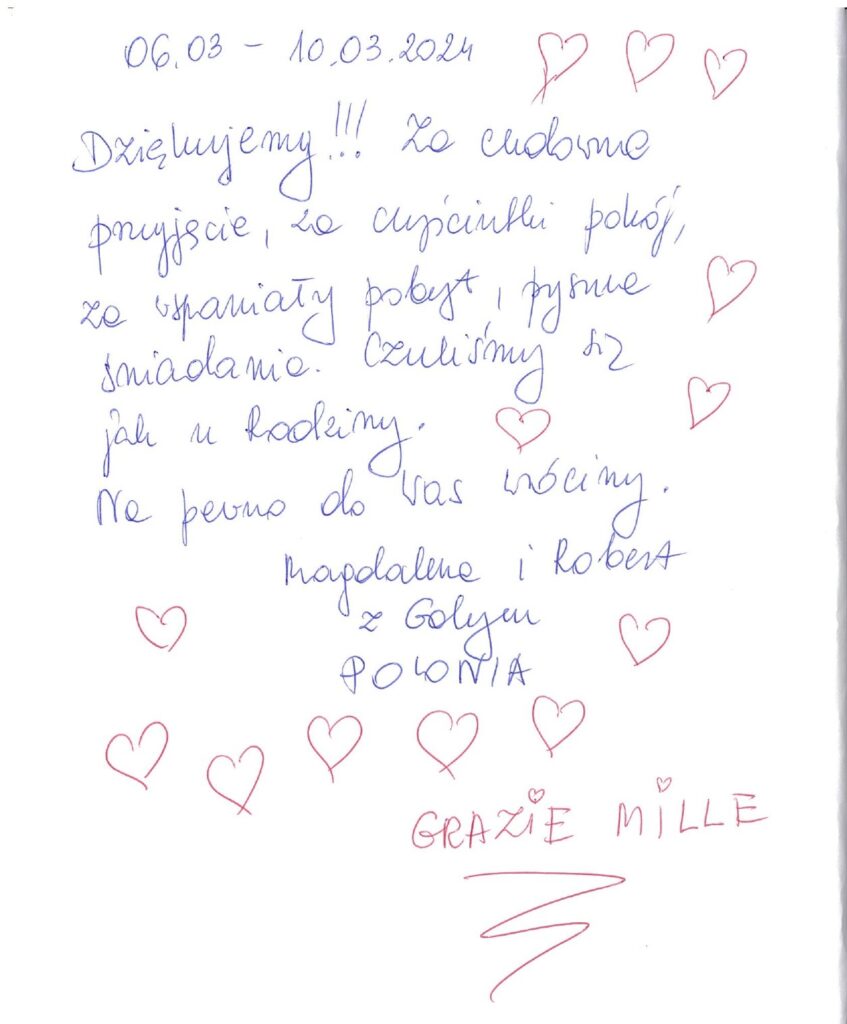 06.03 - 10.03.2024
Dziękujemy!!! Za cudowne
przyjęcie, za czyściutki pokój,
za wspaniały pobyt, pyszne
śniadanie. Czuliśmy się
jak u Rodziny.
Na pewno do Was wrócimy.
Magdalena i Robert
z
POLONIA
GRAZIE MILLE